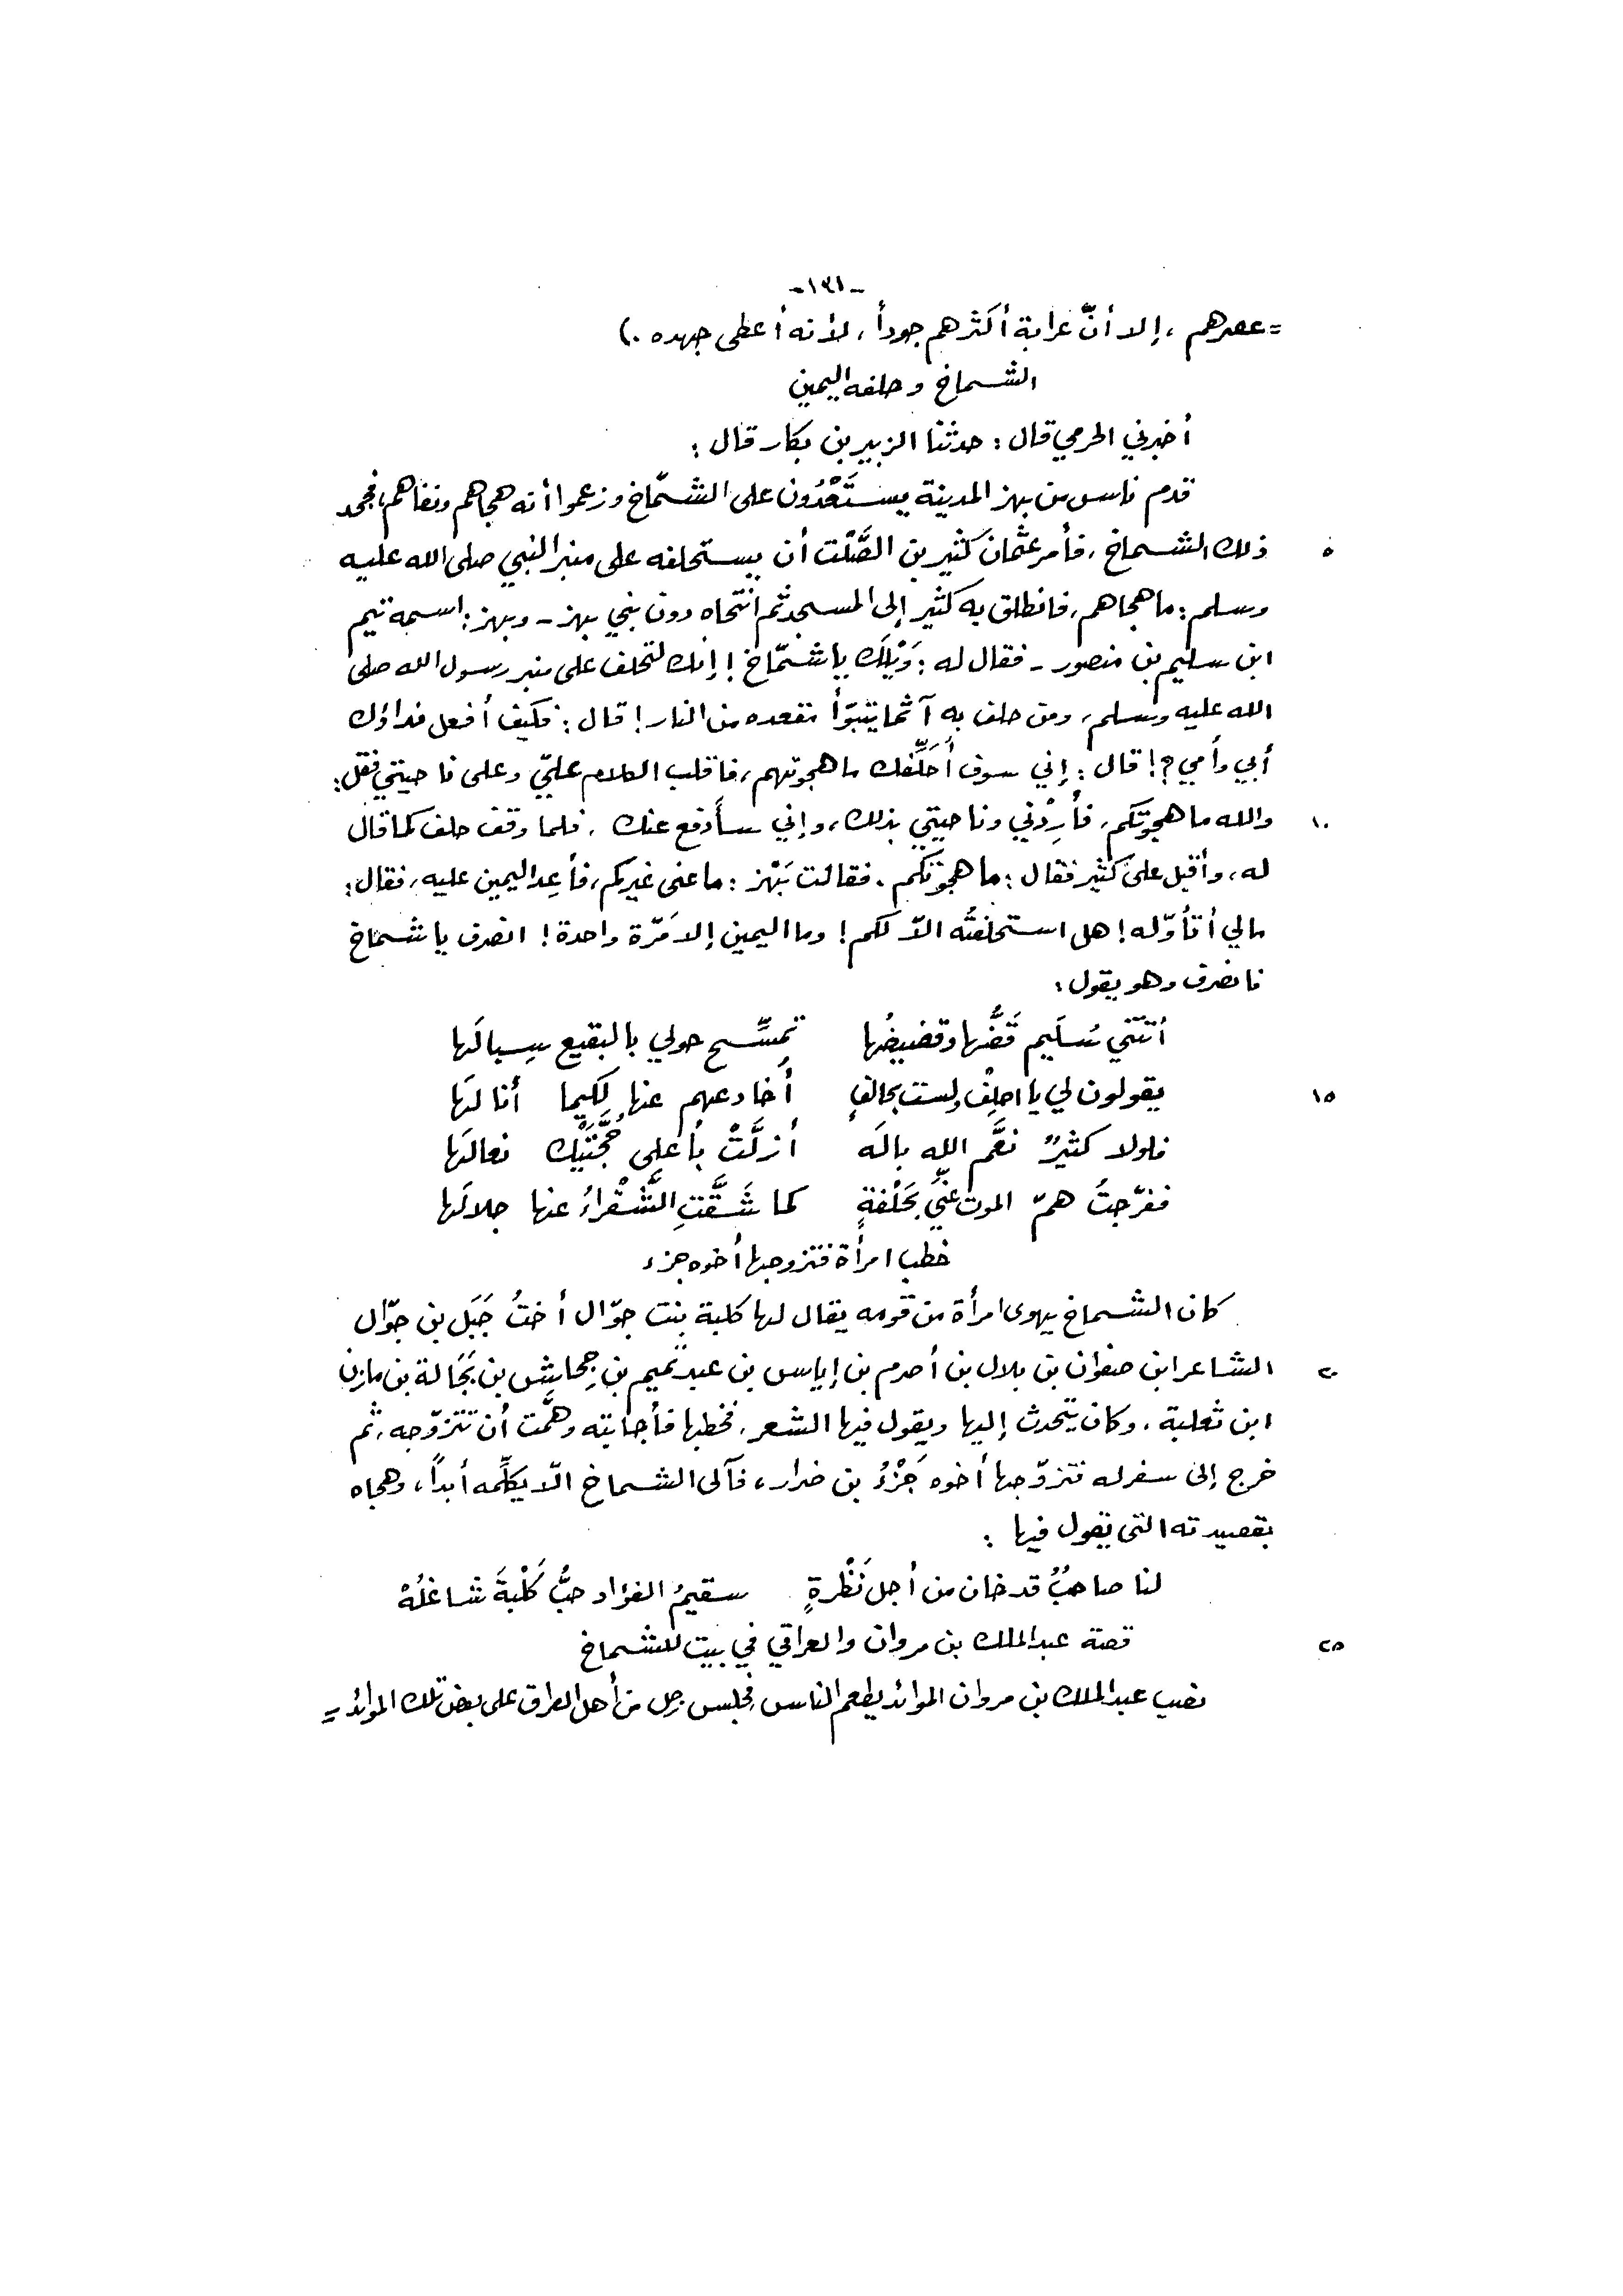 -١٣١-
= عصرهم ، إلا أنّ عرابة أكثرهم جوداً ، لأنه أعطى جهده .)
الشماخ وحلفه اليمين
أخبرني الحرمي قال : حدثنا الزبير بن بكار قال :
قدم ناس من بهز المدينة يستَعْدُون على الشمّاخ وزعموا أنه هجاهم ونفاهم ، فجحد
ذلك الشماخ ، فأمر عثمان كثير بن الصَّلْت أن يستحلفه على منبر النبي صلى الله عليه ٥
وسلم : ما هجاهم ، فانطلق به كثير إلى المسجد ثم انتحاه دون بني بهز - وبهز : اسمه تيم
ابن سليم بن منصور - فقال له : وَيْلَك يا شمّاخ ! إنك لتحلف على منبر رسول الله صلى
الله عليه وسلم ، ومن حلف به آثما يتبوّأ مقعده من النار ! قال : فكيف أفعل فداؤك
أبي وأمي ؟! قال : إني سوف أُحَلِّفك ما هجوتهم ، فاقلب الكلام عليّ وعلى ناحيتي فقل :
والله ما هجوتكم ، فأَرِدْني وناحيتي بذلك ، وإني سأدفع عنك . فلما وقف حلف كما قال ١٠
له ، وأقبل على كثير فقال : ما هجوتكم . فقالت بَهْز : ما عنى غيركم ، فأعِد اليمين عليه ، فقال :
مالي أتأوّله ! هل استحلفتُه الاّ لكم ! وما اليمين إلا مَرّة واحدة ! انصرف يا شماخ
فانصرف وهو يقول :
أتتني سُلَيم قَضُّها وقضيضُها تمسِّح حولي بالبقيع سِبالَها
يقولون لي يا احلِفْ ولست بحالفٍ أُخادعهم عنها لِكيما أنالَها ١٥
فلولا كثيرٌ نعَّم الله بالَه أزلَّتْ بأعلى حُجَّتَيْك نعالَها
ففرّجتُ همّ الموت عنِّي بحَلْفةٍ كما شَقَّتِ الشَّقْراءُ عنها جلالَها
خطب امرأة فتزوجها أخوه جزء
كان الشماخ يهوى امرأة من قومه يقال لها كلبة بنت جوّال أختُ جَبَل بن جوّال
الشاعر ابن صفوان بن بلال بن أصرم بن إياس بن عبد تميم بن جِحاش بن بَجَالة بن مازن ٢٠
ابن ثعلبة ، وكان يتحدث إليها ويقول فيها الشعر ، فخطبها فأجابته وهمَّت أن تتزوّجه ، ثم
خرج إلى سفر له فتزوّجها أخوه جَزْءُ بن ضرار ، فآلى الشماخ الاّ يكلِّمه أبداً ، وهجاه
بقصيدته التي يقول فيها :
لنا صاحبُ قد خان من أجل نَظْرةٍ سقيمُ الفؤاد حبُّ كَلْبةَ شاغلُهْ
قصة عبد الملك بن مروان والعراقي في بيت للشماخ ٢٥
نصب عبد الملك بن مروان الموائد يطعم الناس فجلس رجل من أهل العراق على بعض تلك الموائد =